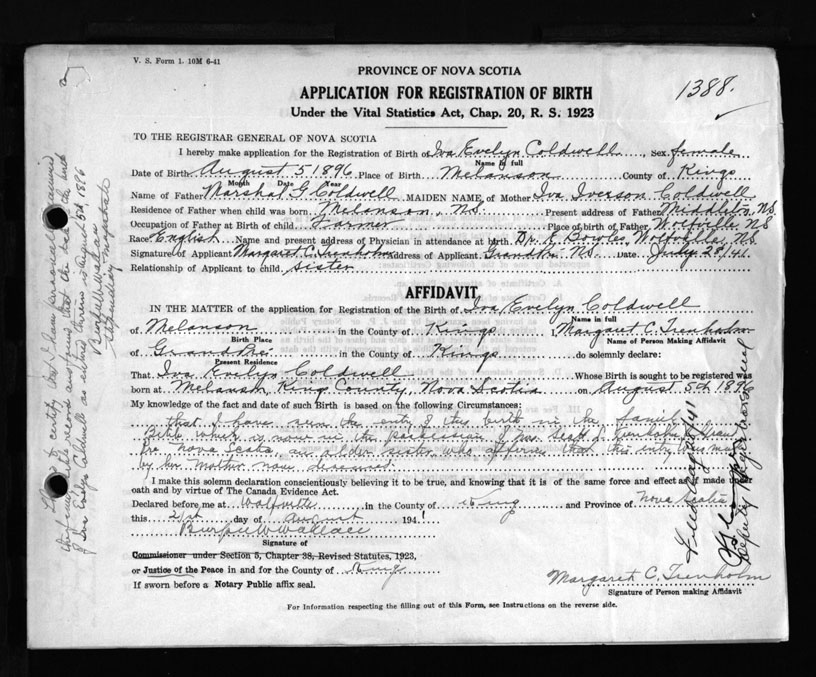 V. S. Form 1. 10M 6-41
PROVINCE OF NOVA SCOTIA
APPLICATION FOR REGISTRATION OF BIRTH
1388.
Under the Vital Statistics Act, Chap. 20, R. S. 1923
TO THE REGISTRAR GENERAL OF NOVA SCOTIA
I hereby make application for the Registration of Birth of Iva Evelyn Coldwell, Sex female
Name in full
Date of Birth August 5 1896 Place of Birth Melanson County of Kings
Month Date Year
Name of Father Marshal G. Coldwell MAIDEN NAME of Mother Iva Iverson Coldwell
Residence of Father when child was born Melanson, N.S. Present address of Father N.S.
Occupation of Father at Birth of child Farmer Place of birth of Father Wolfville N.S.
Race English Name and present address of Physician in attendance at birth Dr. E. Bowles, Wolfville, N.S.
Signature of Applicant Margaret C. Trenholm Address of Applicant Grand Pre N.S. Date July 28/41.
Relationship of Applicant to child sister
AFFIDAVIT
IN THE MATTER of the application for Registration of the Birth of Iva Evelyn Coldwell
Name in full
of Melanson in the County of Kings I, Margaret C. Trenholm
Birth Place Name of Person Making Affidavit
of Grand Pré in the County of Kings do solemnly declare:
Present Residence
That Iva Evelyn Coldwell Whose Birth is sought to be registered was
born at Melanson, King County, Nova Scotia on August 5th 1896
My knowledge of the fact and date of such Birth is based on the following Circumstances:
that I have seen the entry of this birth in the family
Bible which is now in the possession of Mrs
Nova Scotia, an older sister who affirms that this entry was made
by her Mother now deceased.
I make this solemn declaration conscientiously believing it to be true, and knowing that it is of the same force and effect as if made under
oath and by virtue of The Canada Evidence Act.
Declared before me at Wolfville in the County of King and Province of Nova Scotia
this 21st day of August 1941
Burpee W Wallace
Signature of
Commissioner under Section 5, Chapter 38, Revised Statutes, 1923,
or Justice of the Peace in and for the County of King
If sworn before a Notary Public affix seal.
Margaret C. Trenholm
Signature of Person making Affidavit
For Information respecting the filling out of this Form, see Instructions on the reverse side.
This is to certify that I have personally examined
this family record and find that the date the birth
of Iva Evelyn Coldwell as entered therein is August 5th, 1896
Burpee Wallace
Filed August 41
Deputy Registrar General